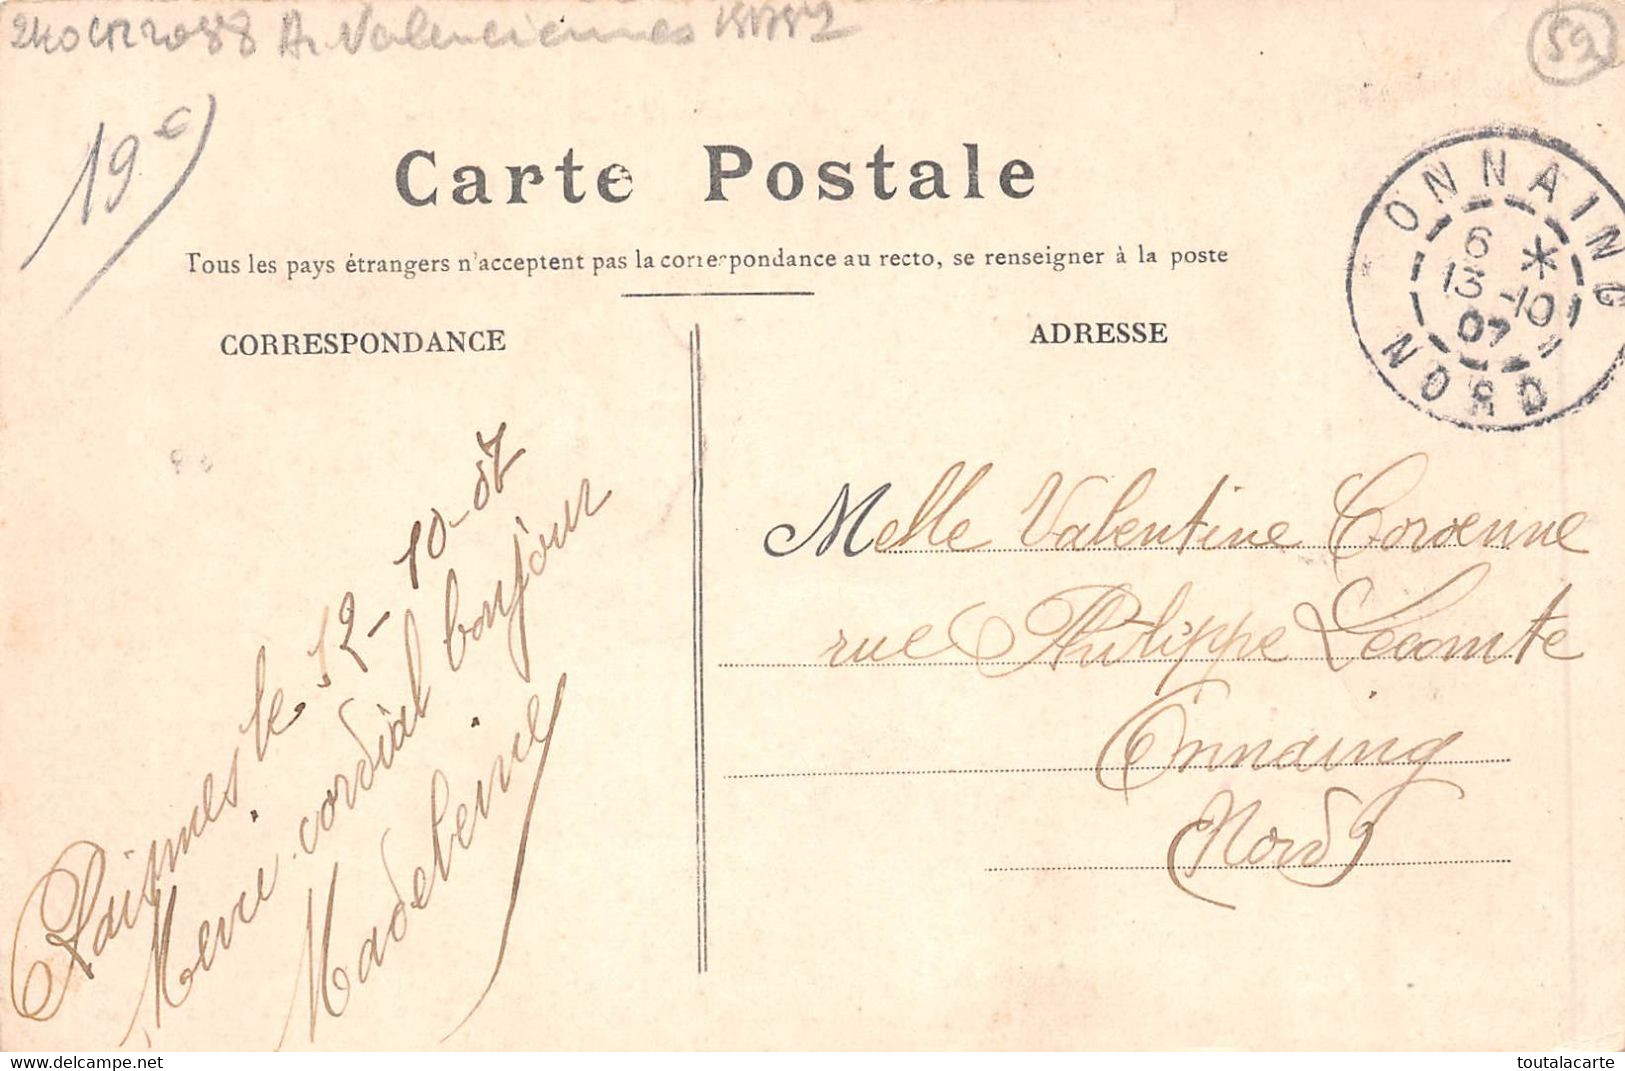 Ar Valenciennes
59
19 €
Carte Postale
Tous les pays étrangers n'acceptent pas la correspondance au recto, se renseigner à la poste
CORRESPONDANCE
ADRESSE
ONNAING
6 *
13 -10
07
NORD
Raismes le 12-10-07
Merci. cordial bonjour
Madeleine
Melle Valentine Cordenne
rue Philippe Lecomte
Onnaing
Nord
www.delcampe.net
toutalacarte